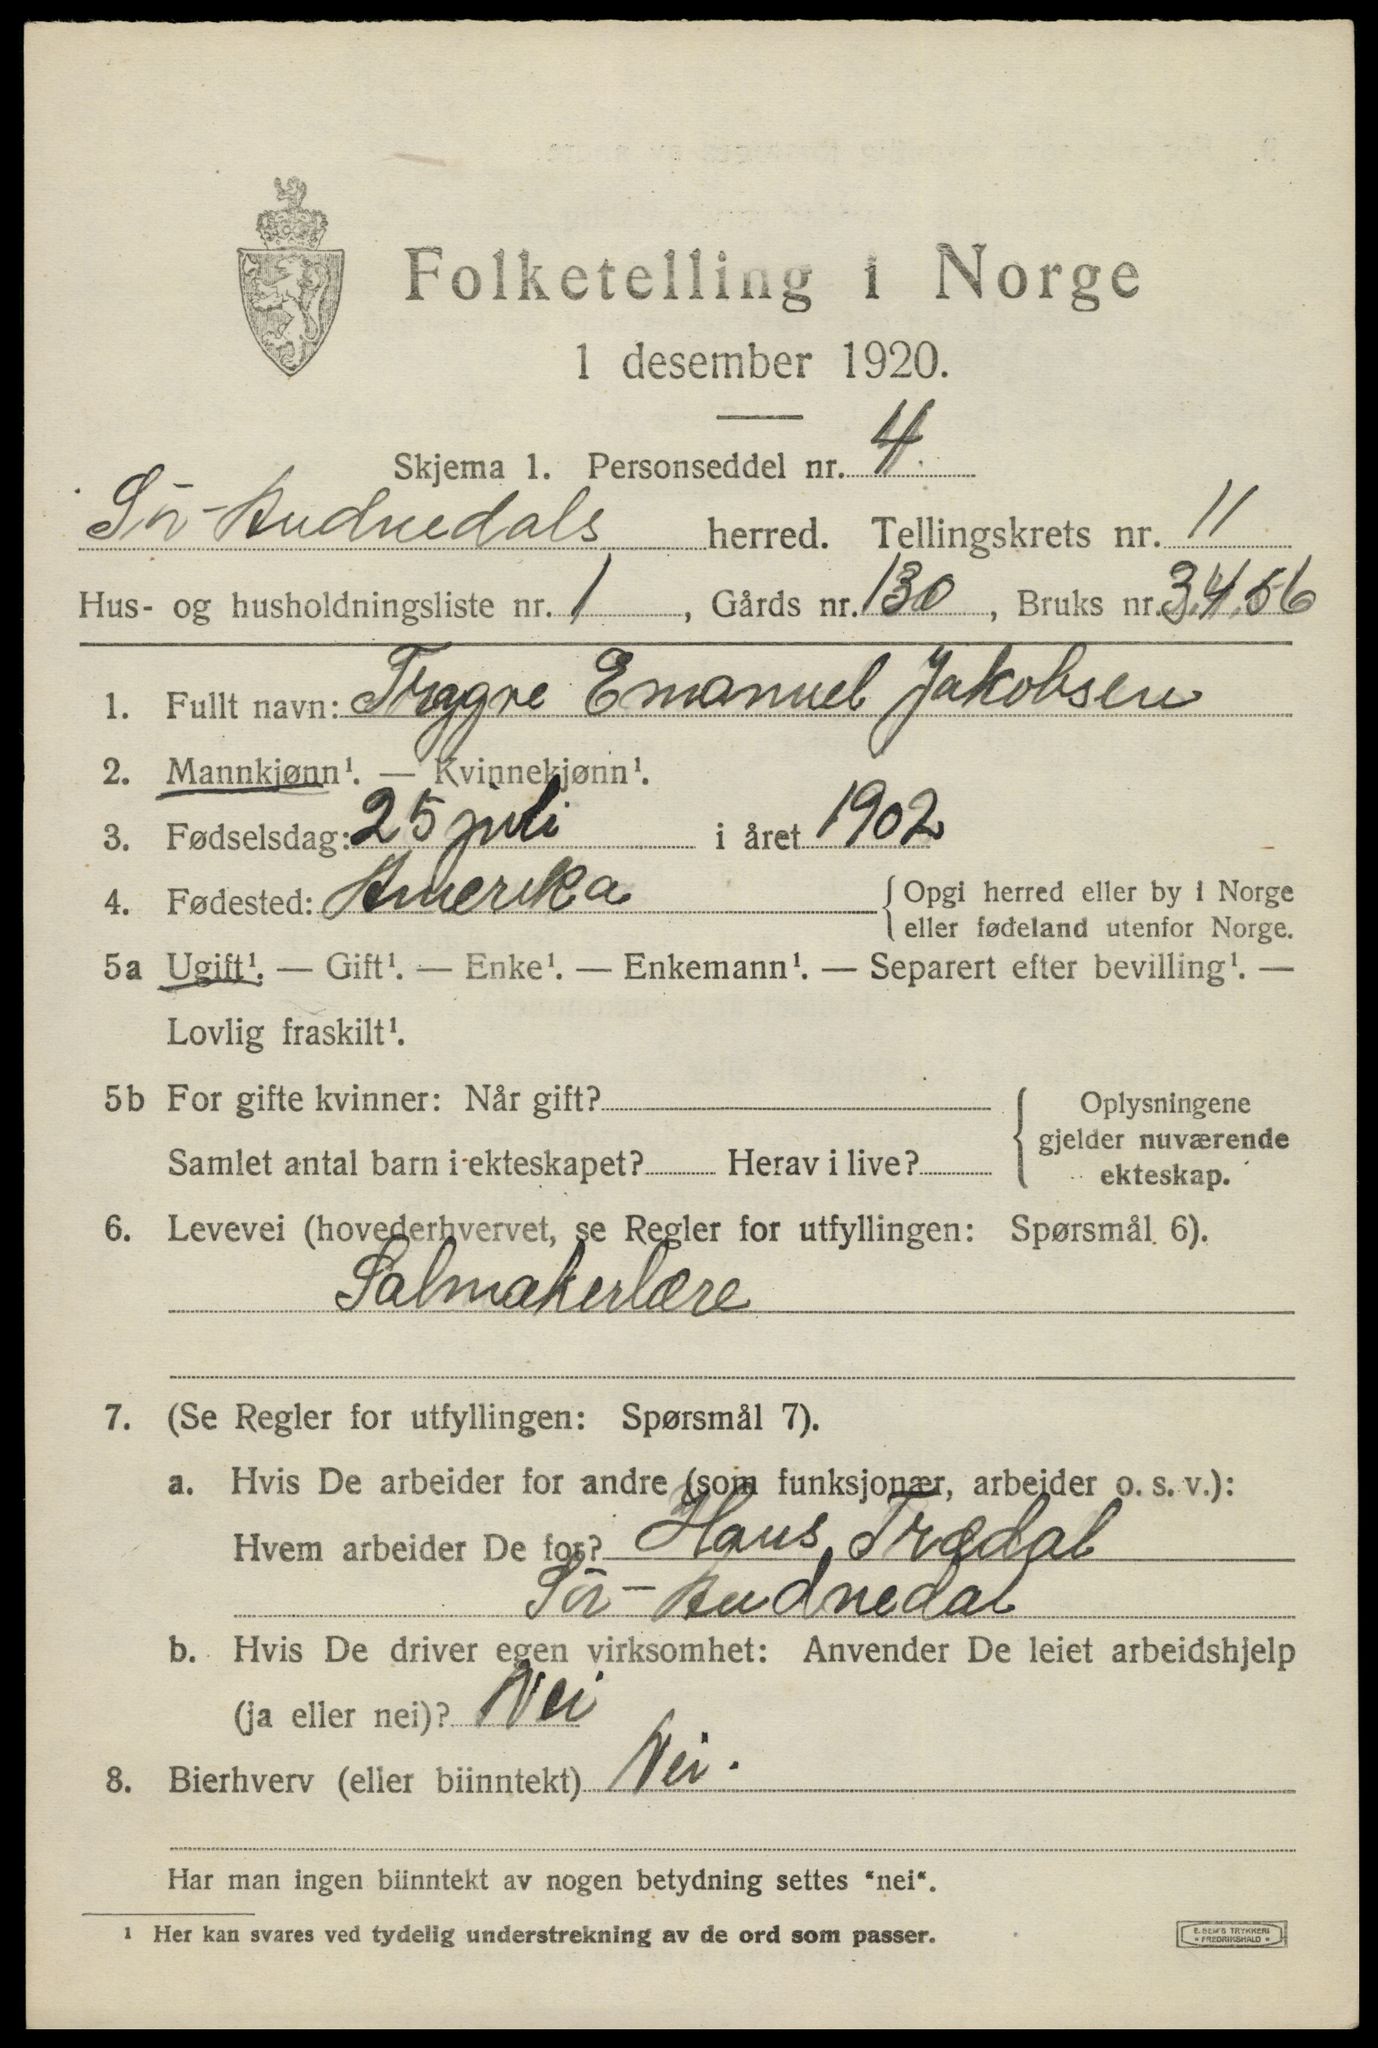 Folketelling i Norge
1 desember 1920.
Skjema 1. Personseddel nr. 4.
Sör-Audnedals herred. Tellingskrets nr. 11
Hus- og husholdningsliste nr. 1, Gårds nr. 130, Bruks nr. 3,4,5 6
1. Fullt navn: Trygve Emanuel Jakobsen
2. Mannkjønn¹. — Kvinnekjønn¹.
3. Fødselsdag: 25 juli i året 1902
4. Fødested: Amerika { Opgi herred eller by i Norge
eller fødeland utenfor Norge.
5a Ugift¹. — Gift¹. — Enke¹. — Enkemann¹. — Separert efter bevilling¹. —
Lovlig fraskilt¹.
5b For gifte kvinner: Når gift? { Oplysningene
gjelder nuværende
Samlet antal barn i ekteskapet? Herav i live?
ekteskap.
6. Levevei (hovederhvervet, se Regler for utfyllingen: Spørsmål 6).
Salmakerlære
7. (Se Regler for utfyllingen: Spørsmål 7).
a. Hvis De arbeider for andre (som funksjonær, arbeider o. s. v.):
Hvem arbeider De for? Hans Trædal
Sör-Audnedal
b. Hvis De driver egen virksomhet: Anvender De leiet arbeidshjelp
(ja eller nei)? Nei
8. Bierhverv (eller biinntekt) Nei.
Har man ingen biinntekt av nogen betydning settes "nei".
¹ Her kan svares ved tydelig understrekning av de ord som passer.
E. SEM'S TRYKKERI
* FREDRIKSHALD *